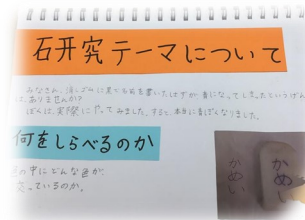 研究テーマについて
みなさん、消しゴムに黒でものを書いたはずが、青になってしまったというけい
は、ありませんか?
ぼくは、実際にやってみました。すると、本当に青ぽくなりました。
何をしらべるのか
の中にどんな色が、
っているのか。
かめい
かめい